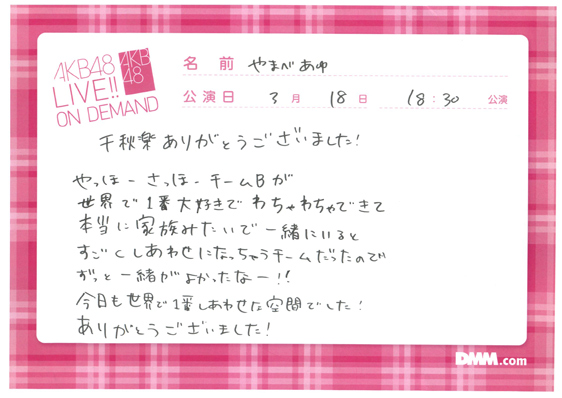 AKB48
LIVE!!
ON DEMAND
AKB
48
名前 やまべあゆ
公演日 3月 18日 18:30 公演
千秋楽ありがとうございました!
やっほー さっほー チームBが
世界で1番大好きで わちゃわちゃできて
本当に家族みたいで一緒にいると
すごくしあわせになっちゃうチームだったので
ずっと一緒がよかったなー!!
今日も世界で1番しあわせな空間でした!
ありがとうございました!
DMM.com